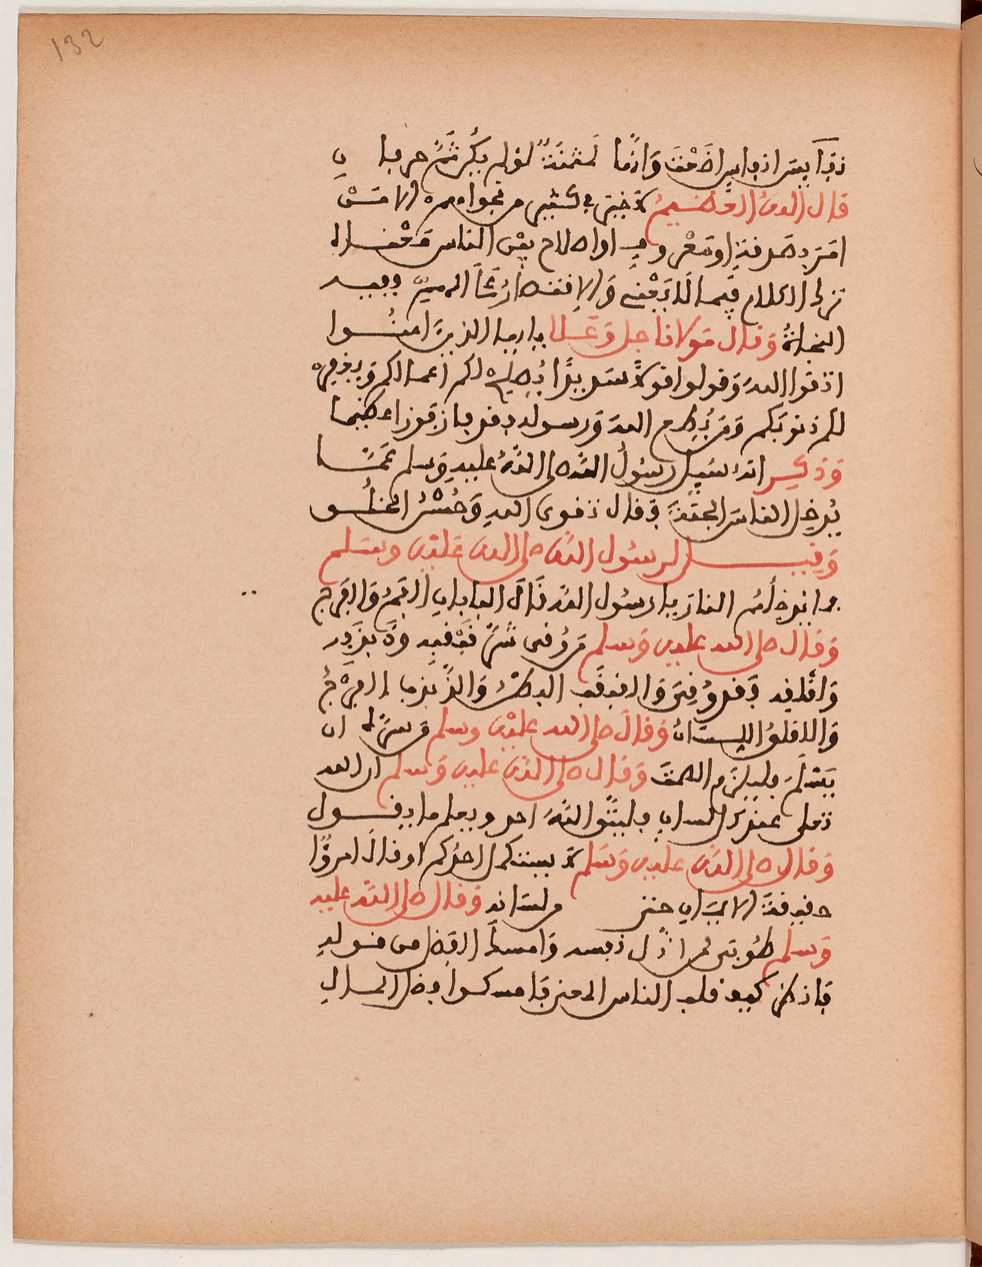 132
قال الله العظيم لا خير في كثير من نجواهم الا من
امر بصدقة او معروف او اصلاح بين الناس
ترك الكلام فيما لا يعني والاقتصار على المهم ففيه
النجاة وقال مولانا جل وعلا يا ايها الذين امنوا
اتقوا الله وقولوا قولا سديدا يصلح لكم اعمالكم ويغفر
لكم ذنوبكم ومن يطع الله ورسوله فقد فاز فوزا عظيما
وذكر انه سيل رسول الله صلى الله عليه وسلم عما
يدخل الناس الجنة فقال تقوى الله وحسن الخلو
وقيل لرسول الله صلى الله عليه وسلم
ما يدخلهم النار يا رسول الله قال البابان الفم والفرج
وقال صلى الله عليه وسلم من وقى شر قبقبه وذبذبه
ولقلقه فقد وقي والقبقب البطن والذبذب الفرج
واللقلق اللسان وقال صلى الله عليه وسلم من سره ان
يسلم فليلزم الصمت وقال صلى الله عليه وسلم ان الله
تعلى عند كل لسان فليتق الله احد ويعلم ما يقول
وقال صلى الله عليه وسلم لا يستكمل احدكم او قال امرؤ
حقيقة الايمان حتى من لسانه وقال صلى الله عليه
وسلم طوبى لمن نفسه وامسك الفضل من قوله
فانظر كيف قلب الناس المعنى فامسكوا فضل المال